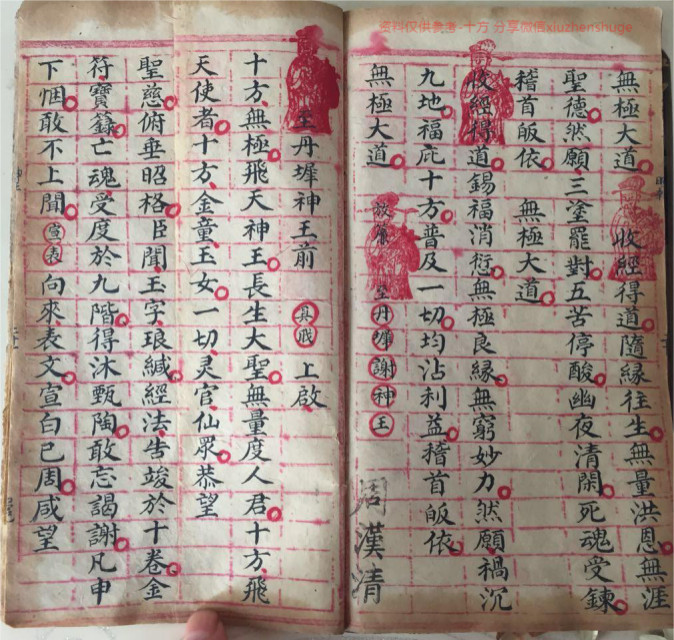 资料仅供参考-十方 分享微信xiuzhenshuge
無極大道 收經得道隨縁往生無量洪恩無涯
聖德然願三塗罷對五苦停酸幽夜清閑死魂受鍊
稽首皈依 無極大道
收經得道錫福消愆無極良縁無窮妙力然願禍沉
九地福庇十方普及一切均沾利益稽首皈依
無極大道 至丹墀謝神王
周漢清
至丹墀神王前 具職 上啟
十方無極飛天神王長生大聖無量度人君十方飛
天使者十方金童玉女一切灵官仙眾恭望
聖慈俯垂昭格臣聞玉字琅緘經法告竣於十卷金
符寶籙亡魂受度於九階得沐甄陶敢忘謁謝凡申
下悃敢不上聞宣表向來表文宣白已周咸望